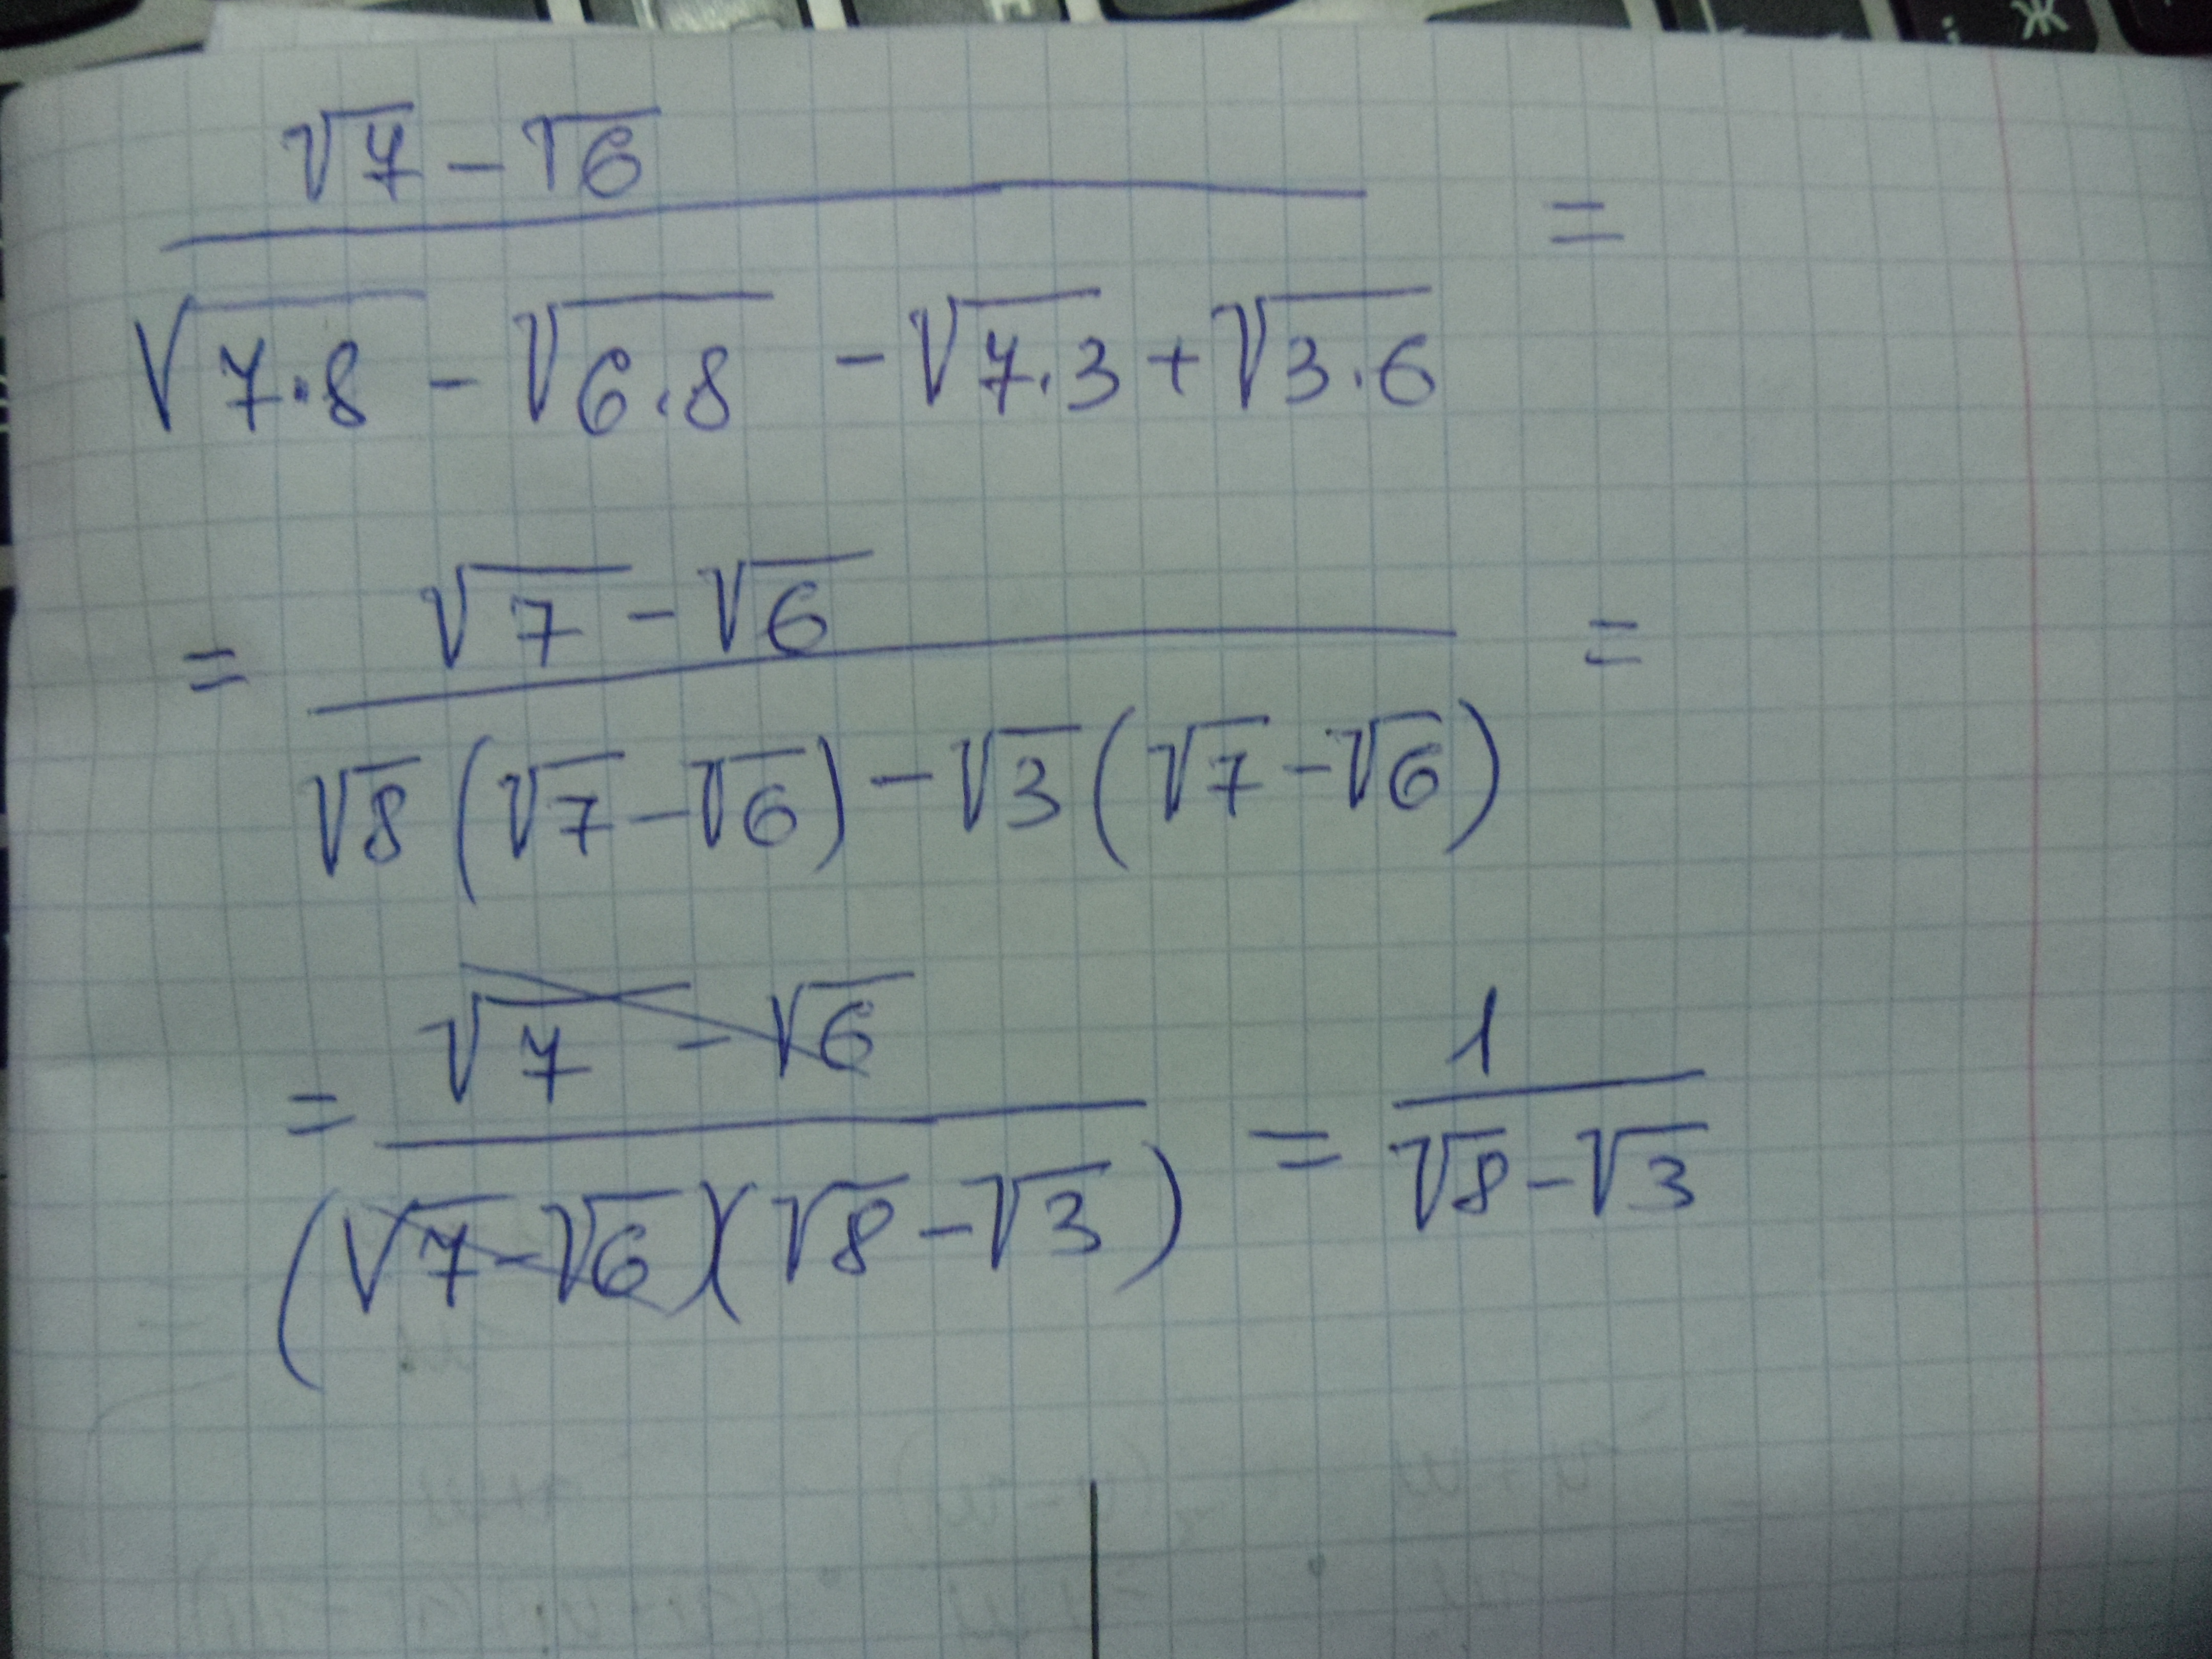 √7 − √6
=
√7·8 − √6·8 − √7·3 + √3·6
√7 − √6
= =
√8 (√7 − √6) − √3 (√7 − √6)
√7 − √6 1
= =
(√7 − √6)(√8 − √3) √8 − √3
і Ж